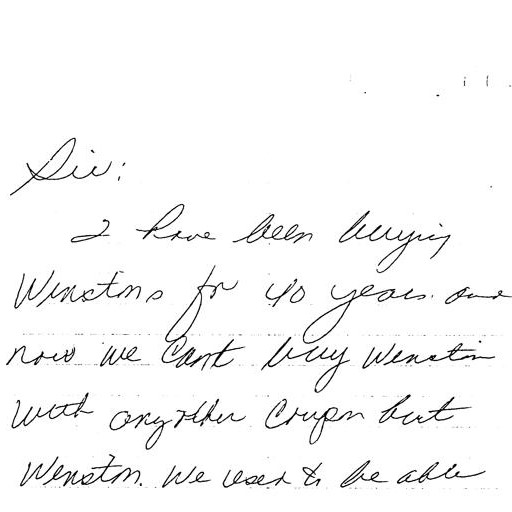 Sir:
I have been buying
Winstons for 40 years. and
now we cant buy Winston
with any other Coupon but
Winston. We used to be able